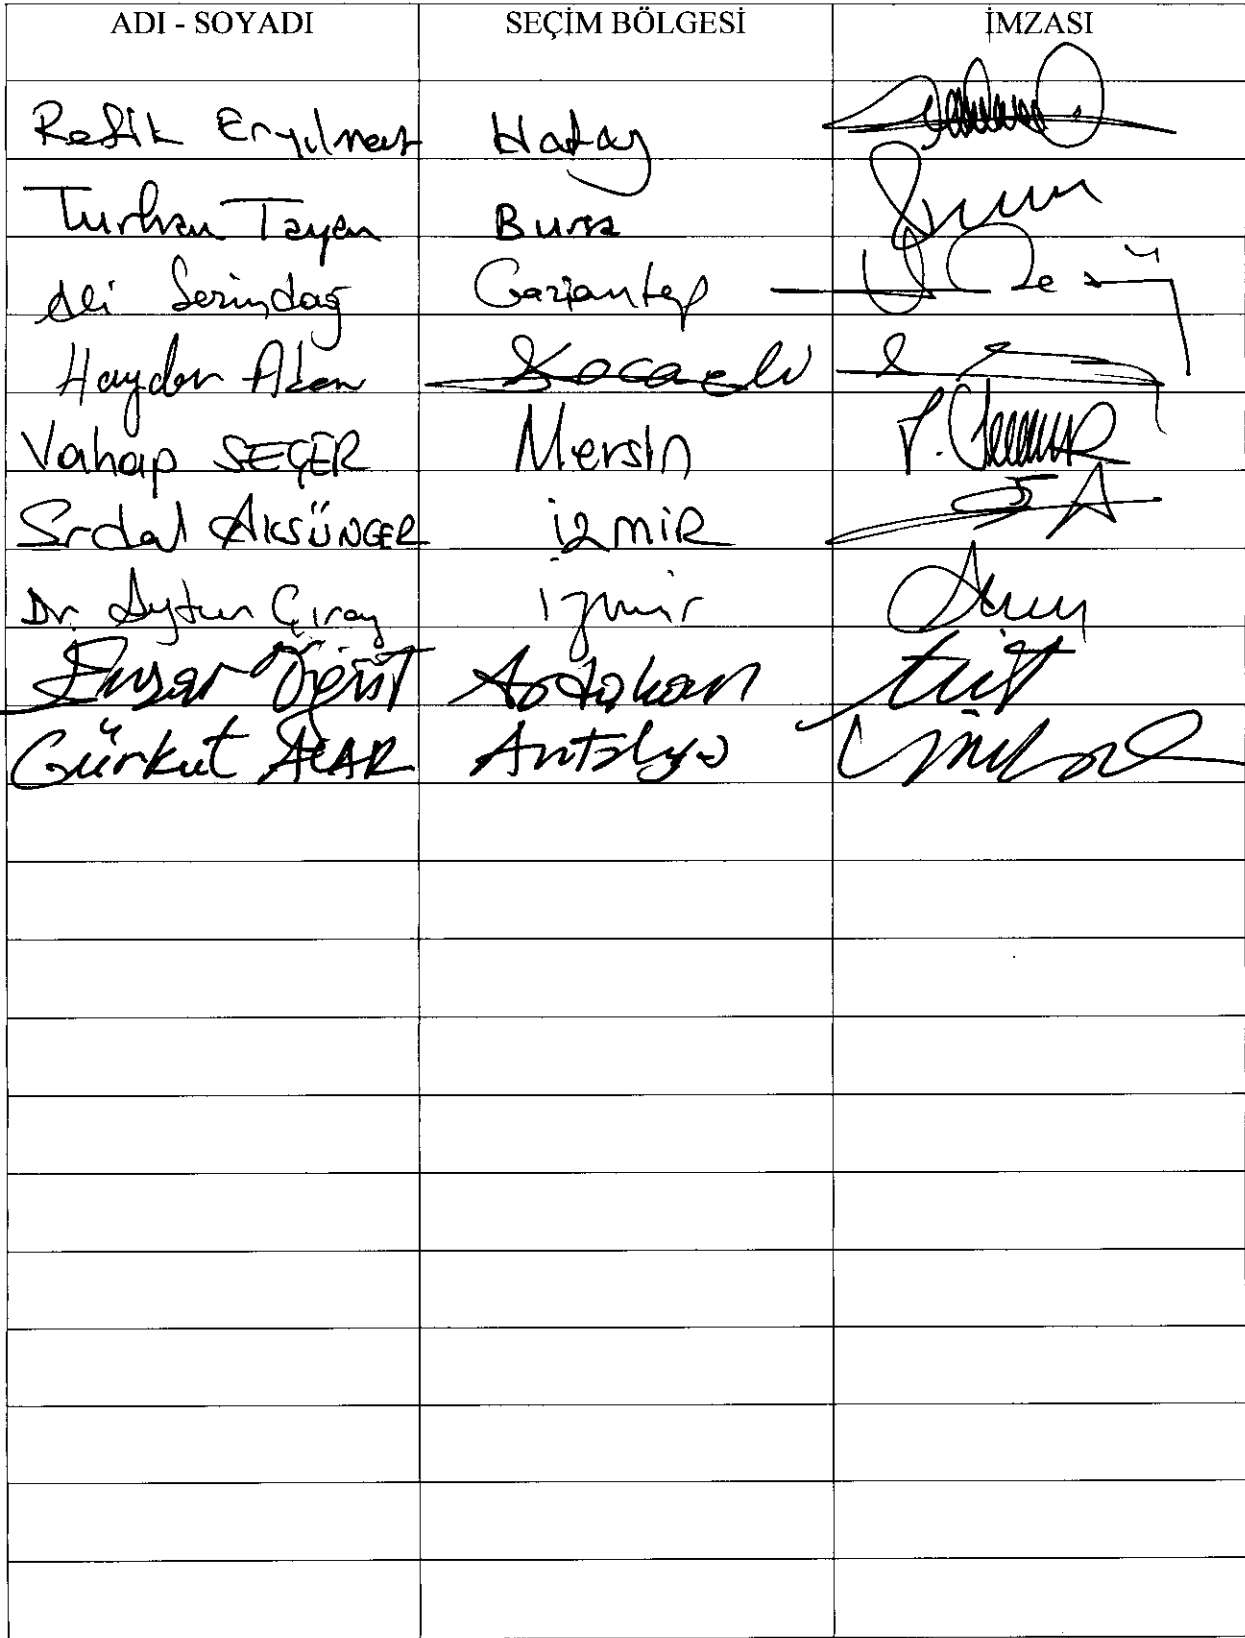 ADI - SOYADI SEÇİM BÖLGESİ İMZASI
Refik Eryılmaz Hatay
Turhan Tayan Bursa
Ali Serindağ Gaziantep
Haydar Akar Kocaeli
Vahap SEÇER Mersin
Erdal AKSÜNGER İZMİR
Dr. Aytun Çıray İzmir
Ensar Öğüt Ardahan
Gürkut ACAR Antalya